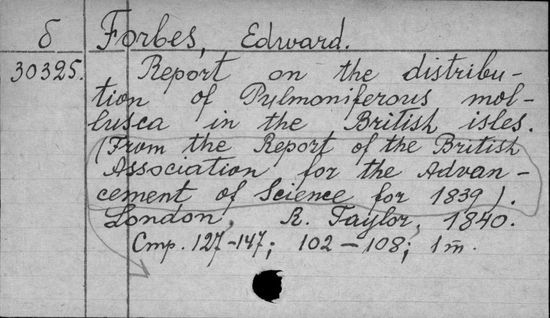 б Forbes, Edward.
30325. Report on the distribu-
tion of Pulmoniferous mol-
lusca in the British isles.
(From the Report of the British
Association for the Advan-
cement of Science for 1839).
London, R. Taylor, 1840.
Стр. 127-147; 102-108; 1 m.